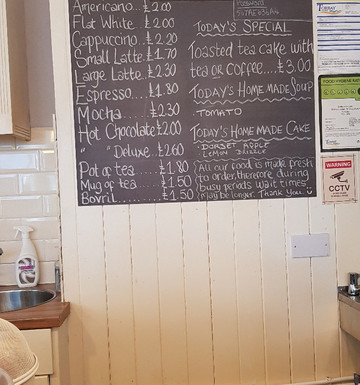 Americano...£2.00
Flat White...£2.00
Cappuccino..£2.20
Small Latte...£1.70
Large Latte..£2.30
Espresso....£1.80
Mocha.....£2.30
Hot Chocolate£2.00
" " Deluxe..£2.60
Pot of tea....£1.80
Mug of tea....£1.50
Bovril.......£1.50
Today's Special
Toasted tea cake with
tea or coffee....£3.00
Today's Home made Soup
Tomato
Today's Home made Cake
Dorset Apple
Lemon Drizzle
All our food is made fresh
to order, therefore during
busy periods wait times
may be longer. Thank You
FOOD HYGIENE
WARNING
CCTV